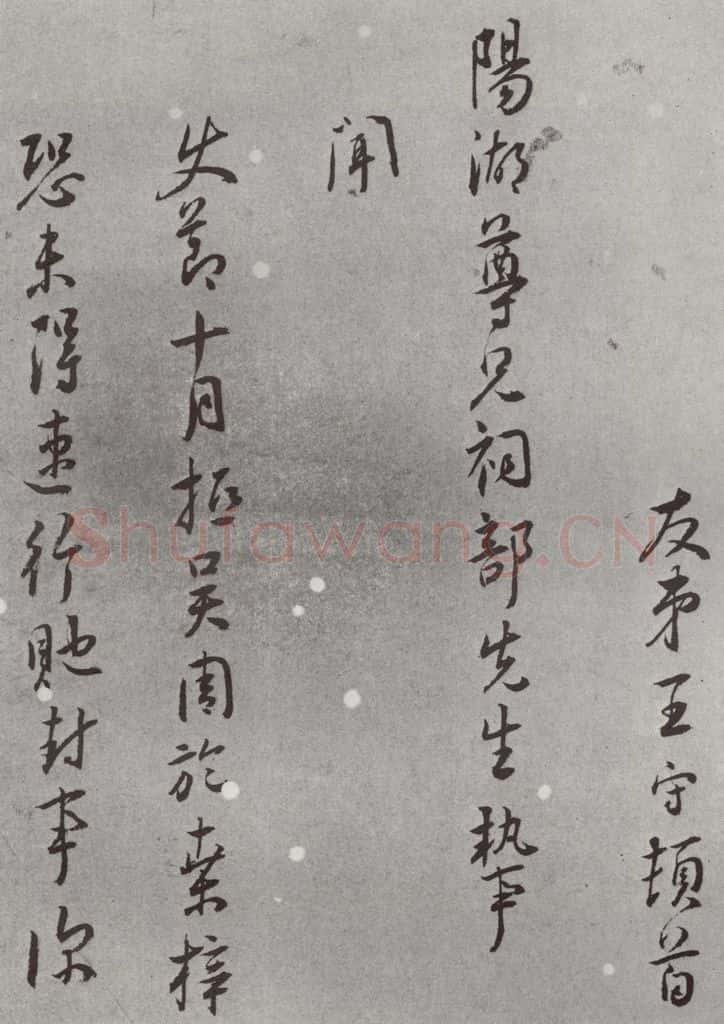 友弟王守頓首
陽湖尊兄祠部先生執事
聞
使節十月抵吴困於桑梓
恐未得速行貤封事深
Shufawang.CN